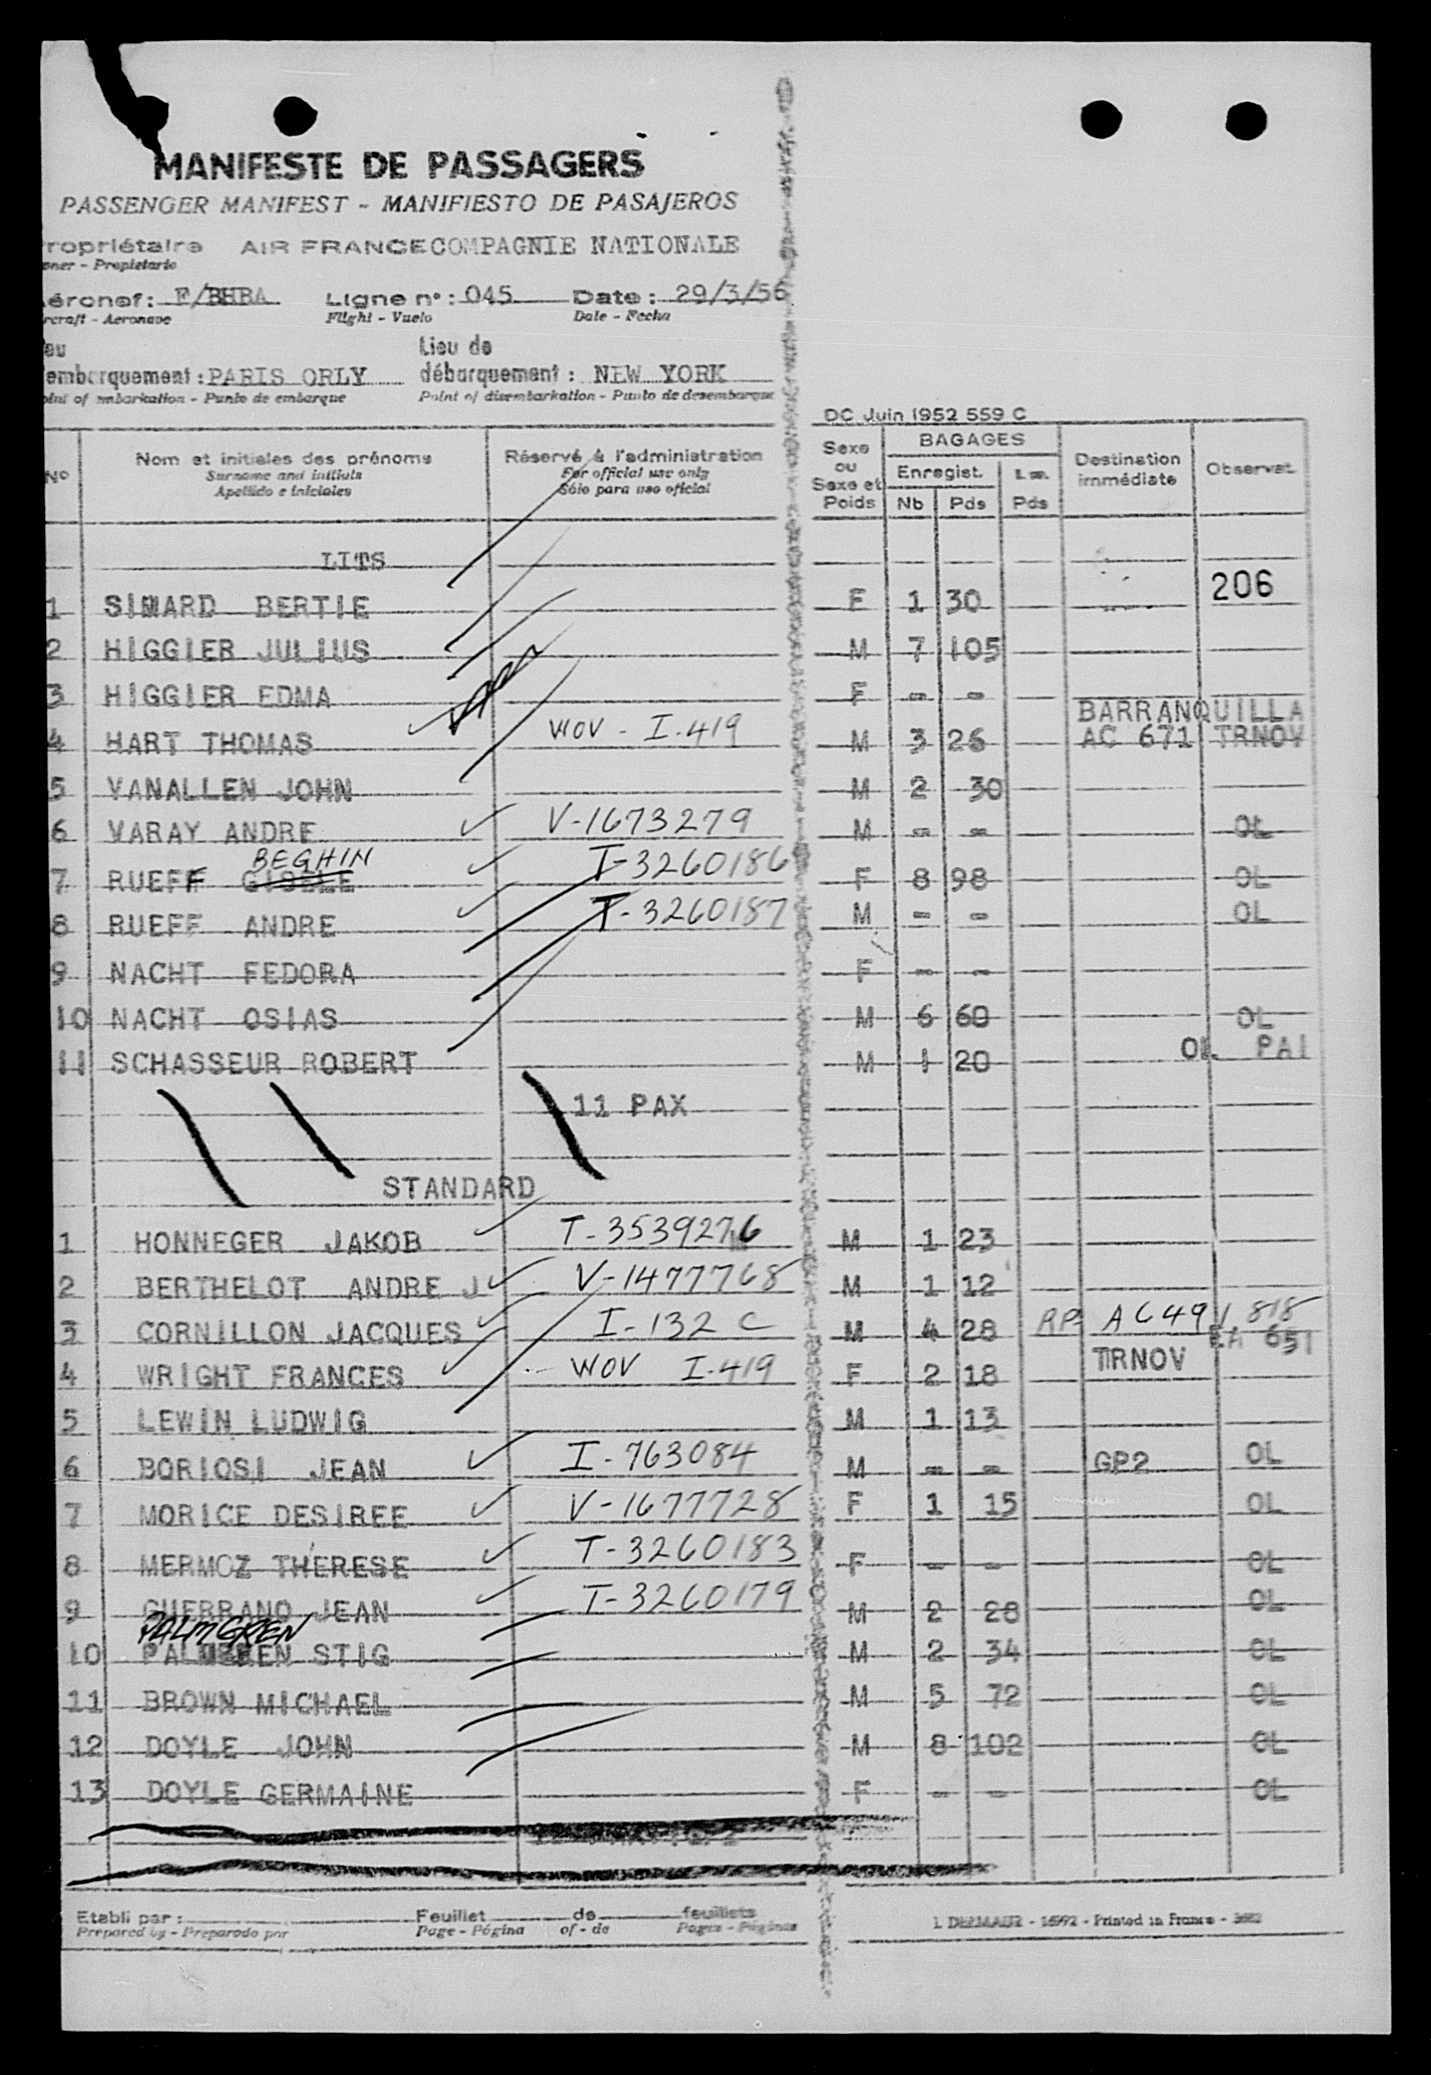 MANIFESTE DE PASSAGERS
PASSENGER MANIFEST - MANIFIESTO DE PASAJEROS
ropriétaire AIR FRANCE COMPAGNIE NATIONALE
ner - Propietario
éronef: F/BHBA Ligne n°: 045 Date: 29/3/56
rcraft - Aeronave Flight - Vuelo Date - Fecha
eu Lieu de
embarquement: PARIS ORLY débarquement: NEW YORK
oint of embarkation - Punto de embarque Point of disembarkation - Punto de desembarque
DC Juin 1952 559 C
N° Nom et initiales des prénoms Réservé à l'administration Sexe ou Sexe et Poids BAGAGES Destination immédiate Observat.
Surname and initials For official use only Enregist.
Apellido e iniciales Sólo para uso oficial Nb Pds Pds
LITS
206
1 SIMARD BERTIE F 1 30
2 HIGGIER JULIUS M 7 105
3 HIGGIER EDMA F - -
BARRANQUILLA
4 HART THOMAS WOV - I-419 M 3 26 AC 671 TRNOV
5 VANALLEN JOHN M 2 30
6 VARAY ANDRE V-1673279 M - - OL
BEGHIN
7 RUEFF GISELE T-3260186 F 8 98 OL
8 RUEFF ANDRE T-3260187 M - - OL
9 NACHT FEDORA F - -
10 NACHT OSIAS M 6 60 OL
11 SCHASSEUR ROBERT M 1 20 OL PAI
11 PAX
STANDARD
1 HONNEGER JAKOB T-3539276 M 1 23
2 BERTHELOT ANDRE J V-1477768 M 1 12
3 CORNILLON JACQUES I-132 C M 4 28 RP AC 491 818
EA 651
4 WRIGHT FRANCES WOV I-419 F 2 18 TRNOV
5 LEWIN LUDWIG M 1 13
6 BORIOSI JEAN I-763084 M - - GP2 OL
7 MORICE DESIREE V-1677728 F 1 15 OL
8 MERMOZ THERESE T-3260183 F - - OL
9 GUERRANO JEAN T-3260179 M 2 28 OL
PALMGREN
10 STIG M 2 34 OL
11 BROWN MICHAEL M 5 72 OL
12 DOYLE JOHN M 8 102 OL
13 DOYLE GERMAINE F - - OL
Etabli par: Feuillet de feuillets
Prepared by - Preparado por Page - Página of - de Pages - Páginas
Printed in France